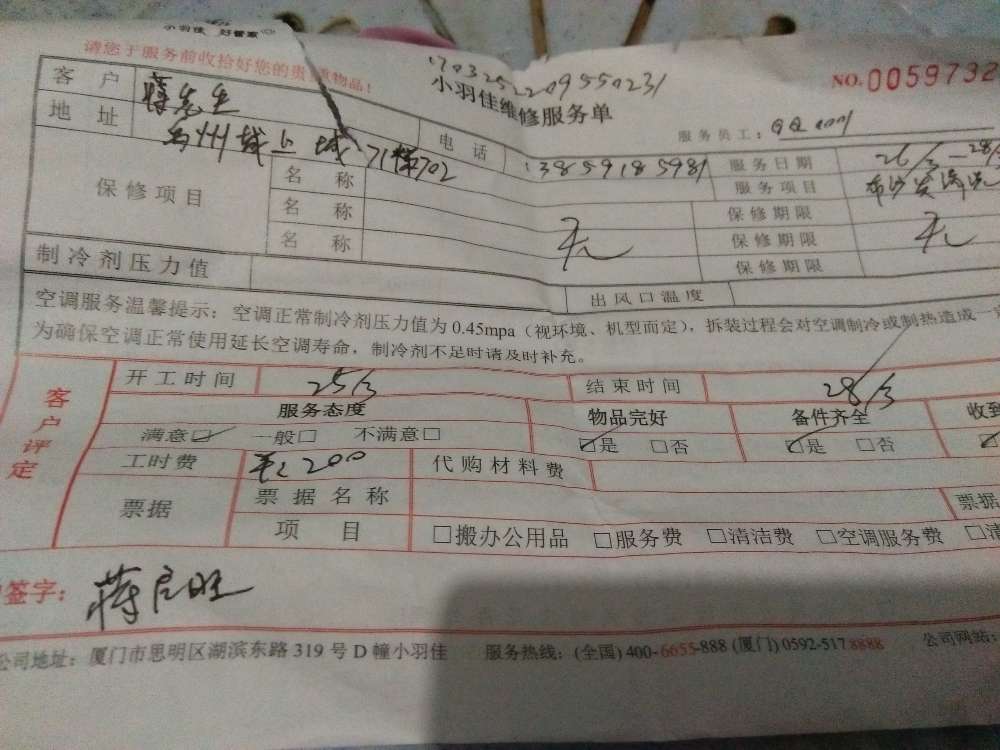 小羽佳 好管家
请您于服务前收拾好您的贵重物品!
17032522095 50231
小羽佳维修服务单
NO.0059732
服务员工:
客户 蒋先生 电话 13859185981 服务日期 26/3-28/
地址 71梯702 服务项目 布沙发清洗
保修项目 名称 无 保修期限 无
名称 保修期限
名称 保修期限
制冷剂压力值 出风口温度
空调服务温馨提示:空调正常制冷剂压力值为0.45mpa(视环境、机型而定),拆装过程会对空调制冷或制热造成一
为确保空调正常使用延长空调寿命,制冷剂不足时请及时补充。
客户评定
开工时间 25/3 结束时间 28/3
服务态度 物品完好 备件齐全 收到
满意☑ 一般□ 不满意□ ☑是 □否 ☑是 □否
工时费 ¥200 代购材料费
票据 票据名称 票据
项目 □搬办公用品 □服务费 □清洁费 □空调服务费 □清
签字: 蒋启旺
公司地址:厦门市思明区湖滨东路319号D幢小羽佳 服务热线:(全国)400-6655-888 (厦门)0592-5178888 公司网站: